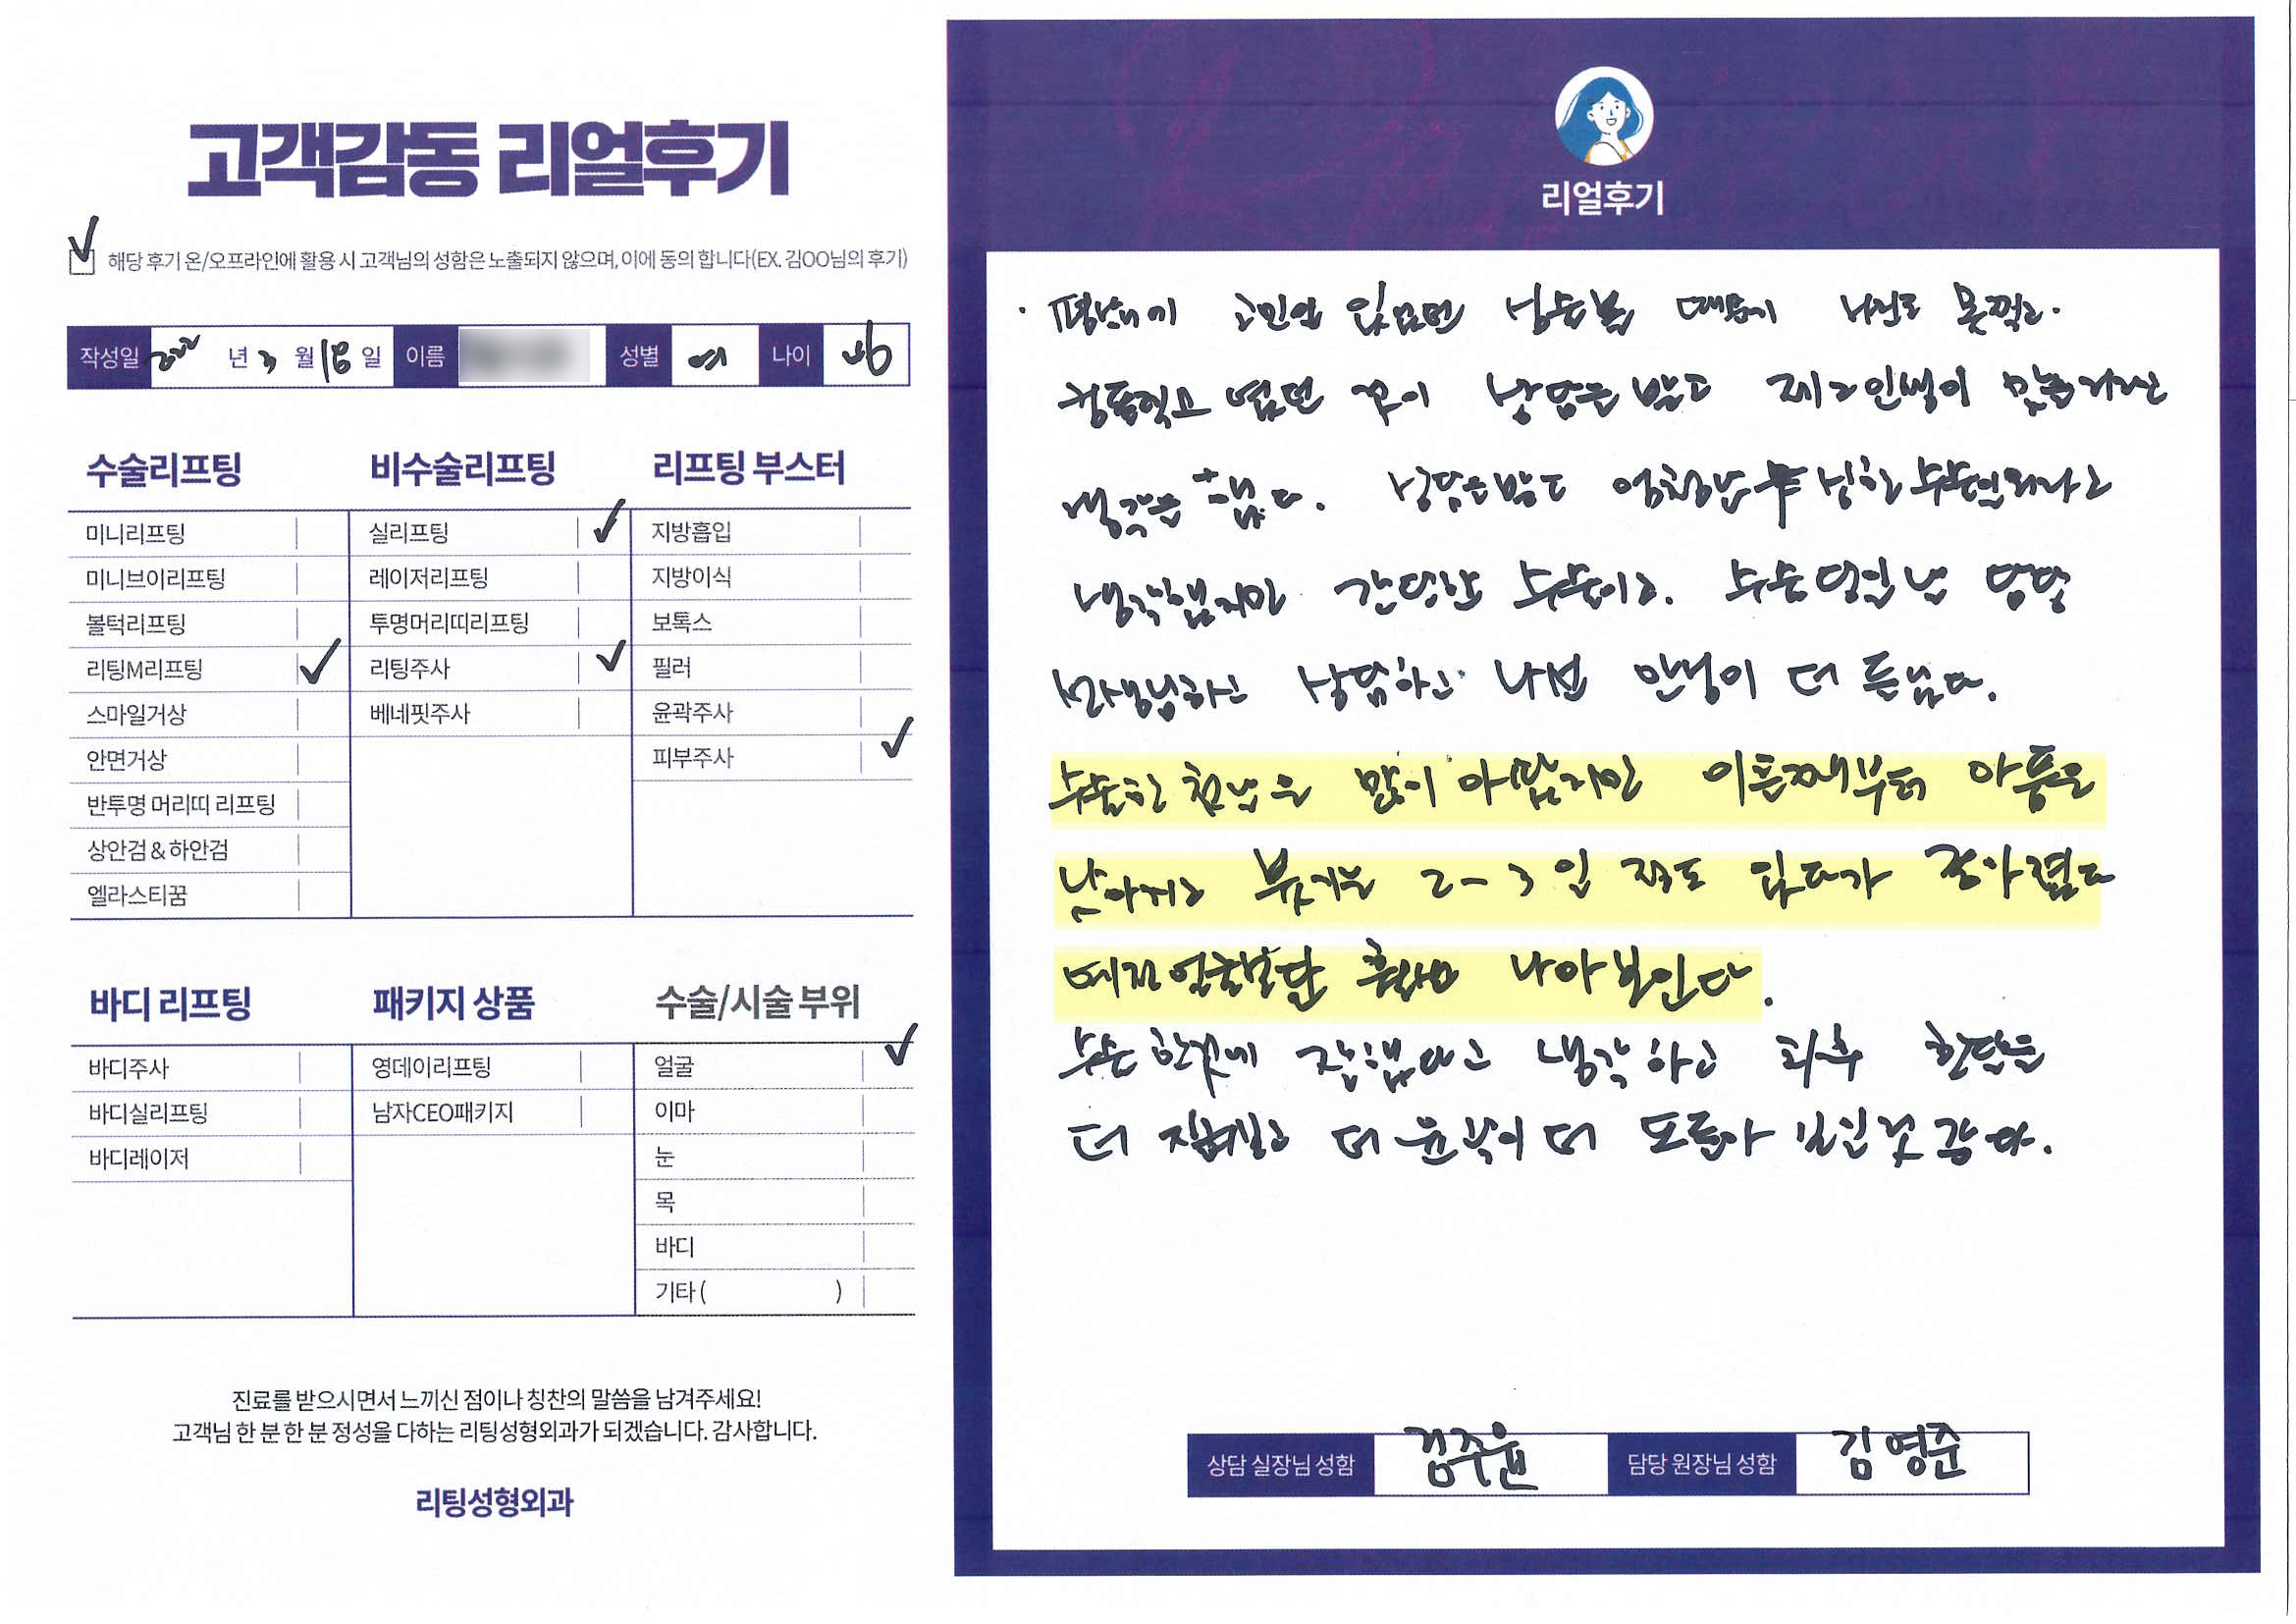 고객감동 리얼후기
해당 후기 온/오프라인에 활용 시 고객님의 성함은 노출되지 않으며, 이에 동의 합니다(EX. 김OO님의 후기)
작성일 년 3 월 18 일 이름 성별 여 나이
수술리프팅
미니리프팅
미니브이리프팅
볼턱리프팅
리팅M리프팅
스마일거상
안면거상
반투명 머리띠 리프팅
상안검 & 하안검
엘라스티꿈
비수술리프팅
실리프팅
레이저리프팅
투명머리띠리프팅
리팅주사
베네핏주사
리프팅 부스터
지방흡입
지방이식
보톡스
필러
윤곽주사
피부주사
바디 리프팅
바디주사
바디실리프팅
바디레이저
패키지 상품
영데이리프팅
남자CEO패키지
수술/시술 부위
얼굴
이마
눈
목
바디
기타 ( )
진료를 받으시면서 느끼신 점이나 칭찬의 말씀을 남겨주세요!
고객님 한 분 한 분 정성을 다하는 리팅성형외과가 되겠습니다. 감사합니다.
리팅성형외과
리얼후기
평상시에 고민인 있으면 때문에 사진도 못찍고.
상담을 받고 제2인생이
생각은 했다. 상담은받고
생각했지만 간단한 수술이고. 수술 당일 날 담당
상담하고 나서 안정이 더 든다.
수술한 첫날은 많이 아팠지만 이튿째부터 아픔은
낮아지고 붓기는 2-3일 정도 있다가 좋아졌다
예전 얼굴보단 훨씬 나아보인다.
수술 한것에 잘했다고 생각하고 차후 한달은
더 지켜보고 더 윤곽이 더 도드라 보일 것 같다.
상담 실장님 성함 김주윤 담당 원장님 성함 김영준